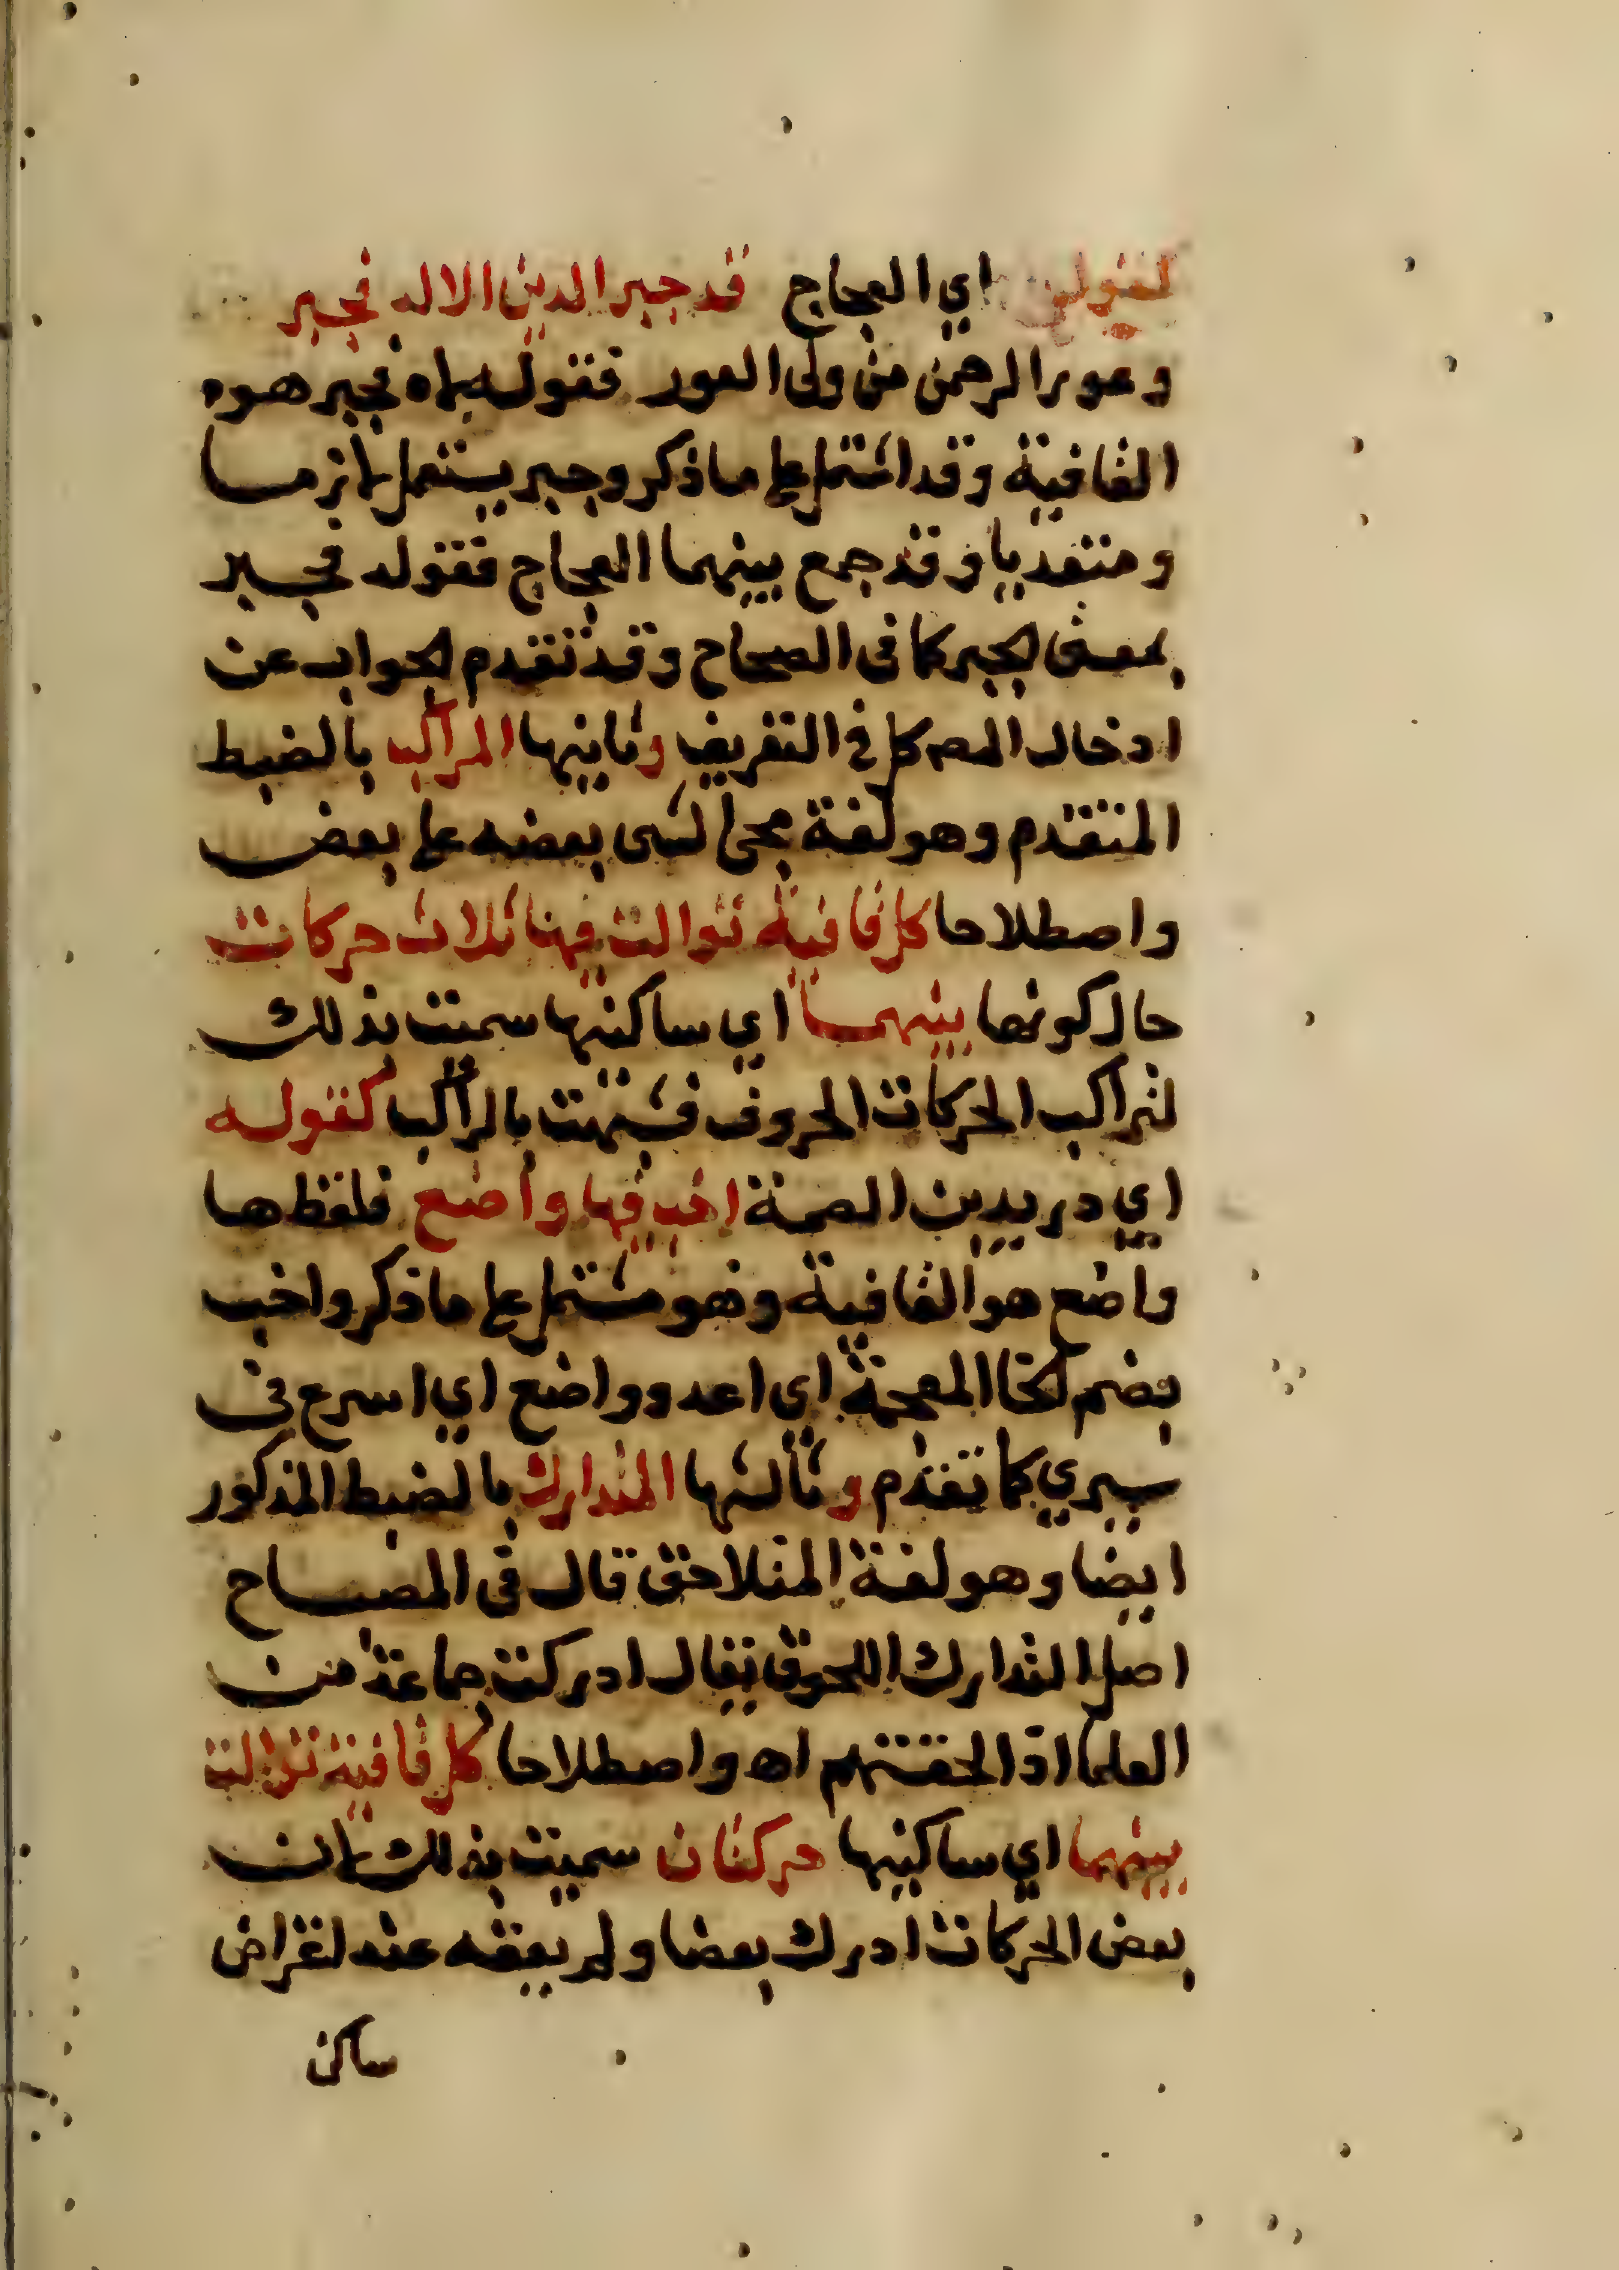 كقوله اي العجاج قد جبر الدين الاله فجبر
وعور الرحمن من ولى العور فقوله لاه فجبر هوه
القافية وقد اشتمل على ماذكر وجبر يستعمل لازمسا
ومتعديا وقد جمع بينهما العجاج فقوله فجبر
بمعنى انجبر كما فى الصحاح وقد تقدم الجواب عن
ادخال المص كل في التعريف وثانيها المتراكب بالضبط
المتقدم وهو لغة مجئ الشى بعضه على بعض
واصطلاحا كل قافية توالت فيها ثلاث حركات
حال كونها بينهما اي ساكنيها سميت بذلك
لتراكب الحركات الحروف فشبهت بالراكب كقوله
اي دريد بن الصمة اخب فيها واضع فلفظ ها
واضع هو القافية وهو مشتمل على ماذكر واخب
بضم الخا المعجمة اي اعدو واضع اي اسرع فى
سيري كما تقدم وثالثها المتدارك بالضبط المذكور
ايضا وهو لغة المتلاحق قال فى المصباح
اصل التدارك اللحوق يقال ادركت جماعة من
العلما اذا لحقتهم اه واصطلاحا كل قافية توالت
بينهما اي ساكنيها حركتان سميت بذلك لان
بعض الحركات ادرك بعضا ولم يعقه عنه اعتراض
ساكن